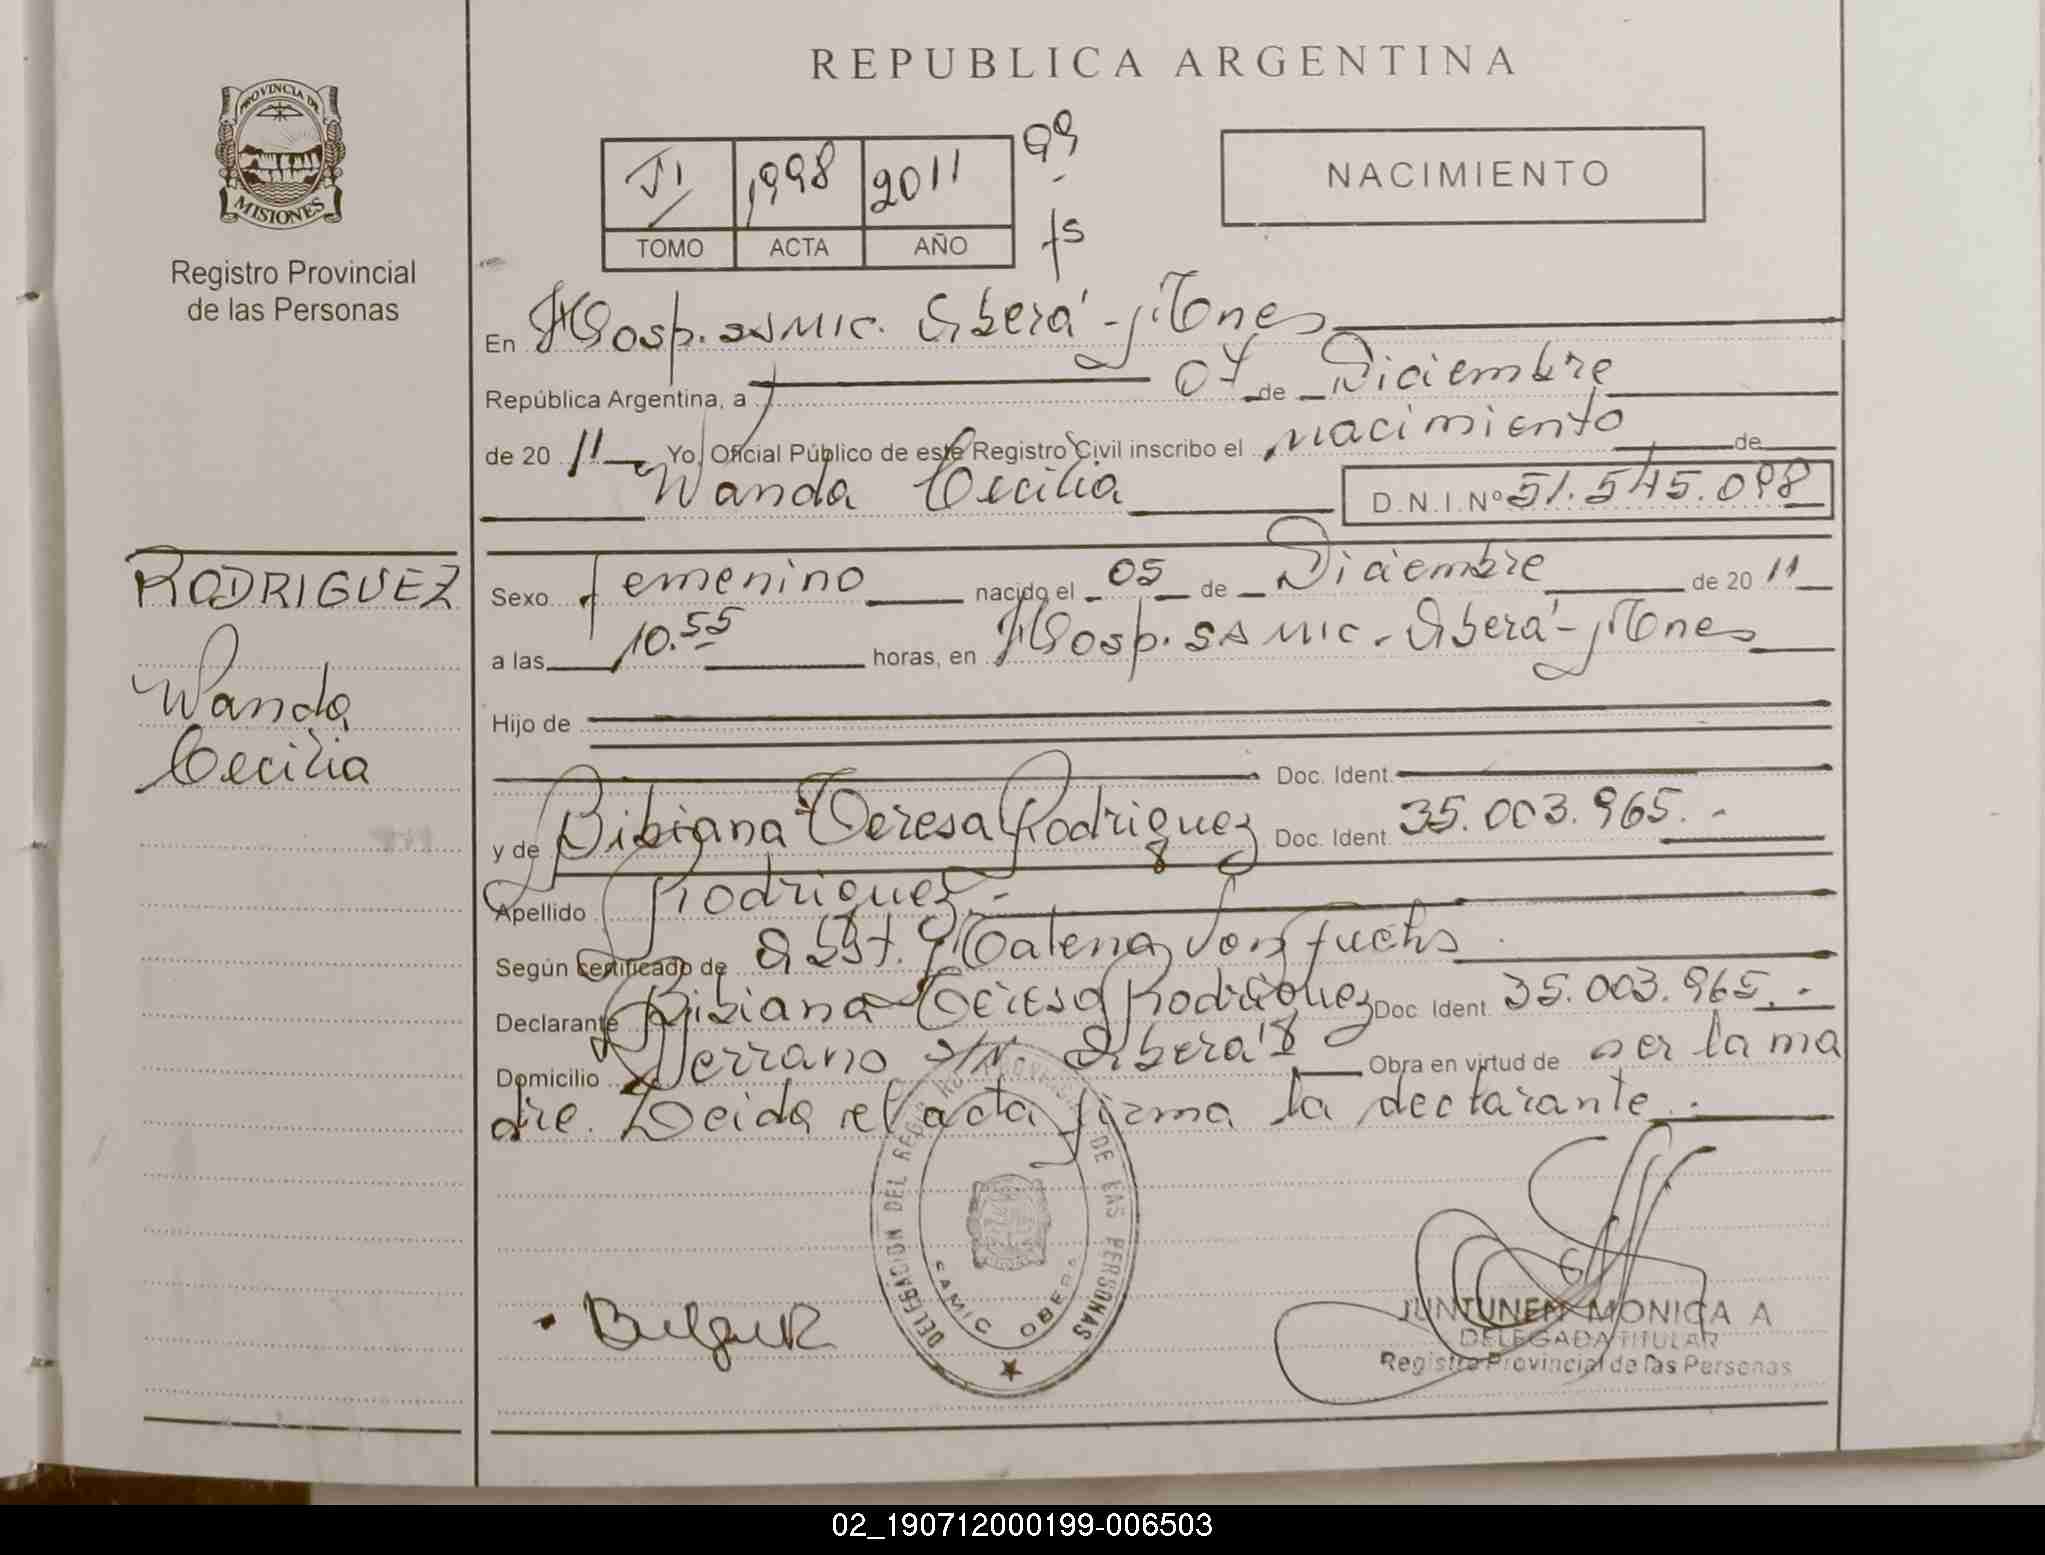 REPUBLICA ARGENTINA
PROVINCIA DE
MISIONES
Registro Provincial
de las Personas
1998 2011
TOMO ACTA AÑO
99
fs
NACIMIENTO
En Hosp. SAMIC. Oberá - Mnes
República Argentina, a 07 de Diciembre
de 20 11 Yo, Oficial Público de este Registro Civil inscribo el nacimiento de
Wanda Cecilia D.N.I.Nº 51.545.098
RODRIGUEZ
Wanda
Cecilia
Sexo femenino nacido el 05 de Diciembre de 20 11
a las 10.55 horas, en Hosp. SAMIC. Oberá - Mnes
Hijo de
Doc. Ident.
y de Bibiana Teresa Rodriguez Doc. Ident. 35.003.965.-
Apellido Rodriguez.-
Según certificado de Obst. Malena Von fuchs
Declarante Bibiana Teresa Rodriguez Doc. Ident. 35.003.965.-
Domicilio Serrano S/N Oberá Obra en virtud de ser la ma
dre. Leida el acta firma la declarante.-
DELEGACION DEL REGISTRO PROVINCIAL DE LAS PERSONAS
SAMIC OBERA
JUNTUNEN MONICA A
DELEGADA TITULAR
Registro Provincial de las Personas
02_190712000199-006503